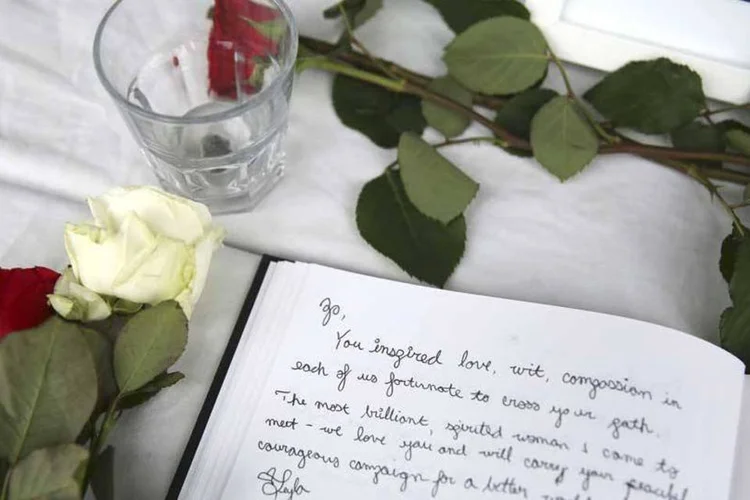 Jo,
You inspired love, wit, compassion in
each of us fortunate to cross your path.
The most brilliant, spirited woman I came to
meet - we love you and will carry your peaceful
courageous campaign for a better world
Leyla